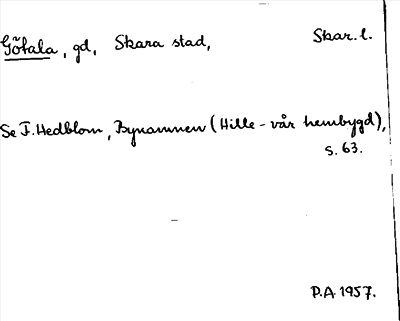 Götala, gd, Skara stad, Skar. l.
Se F. Hedblom, Bynamnen (Hille - vår hembygd),
s. 63.
P.A 1957.